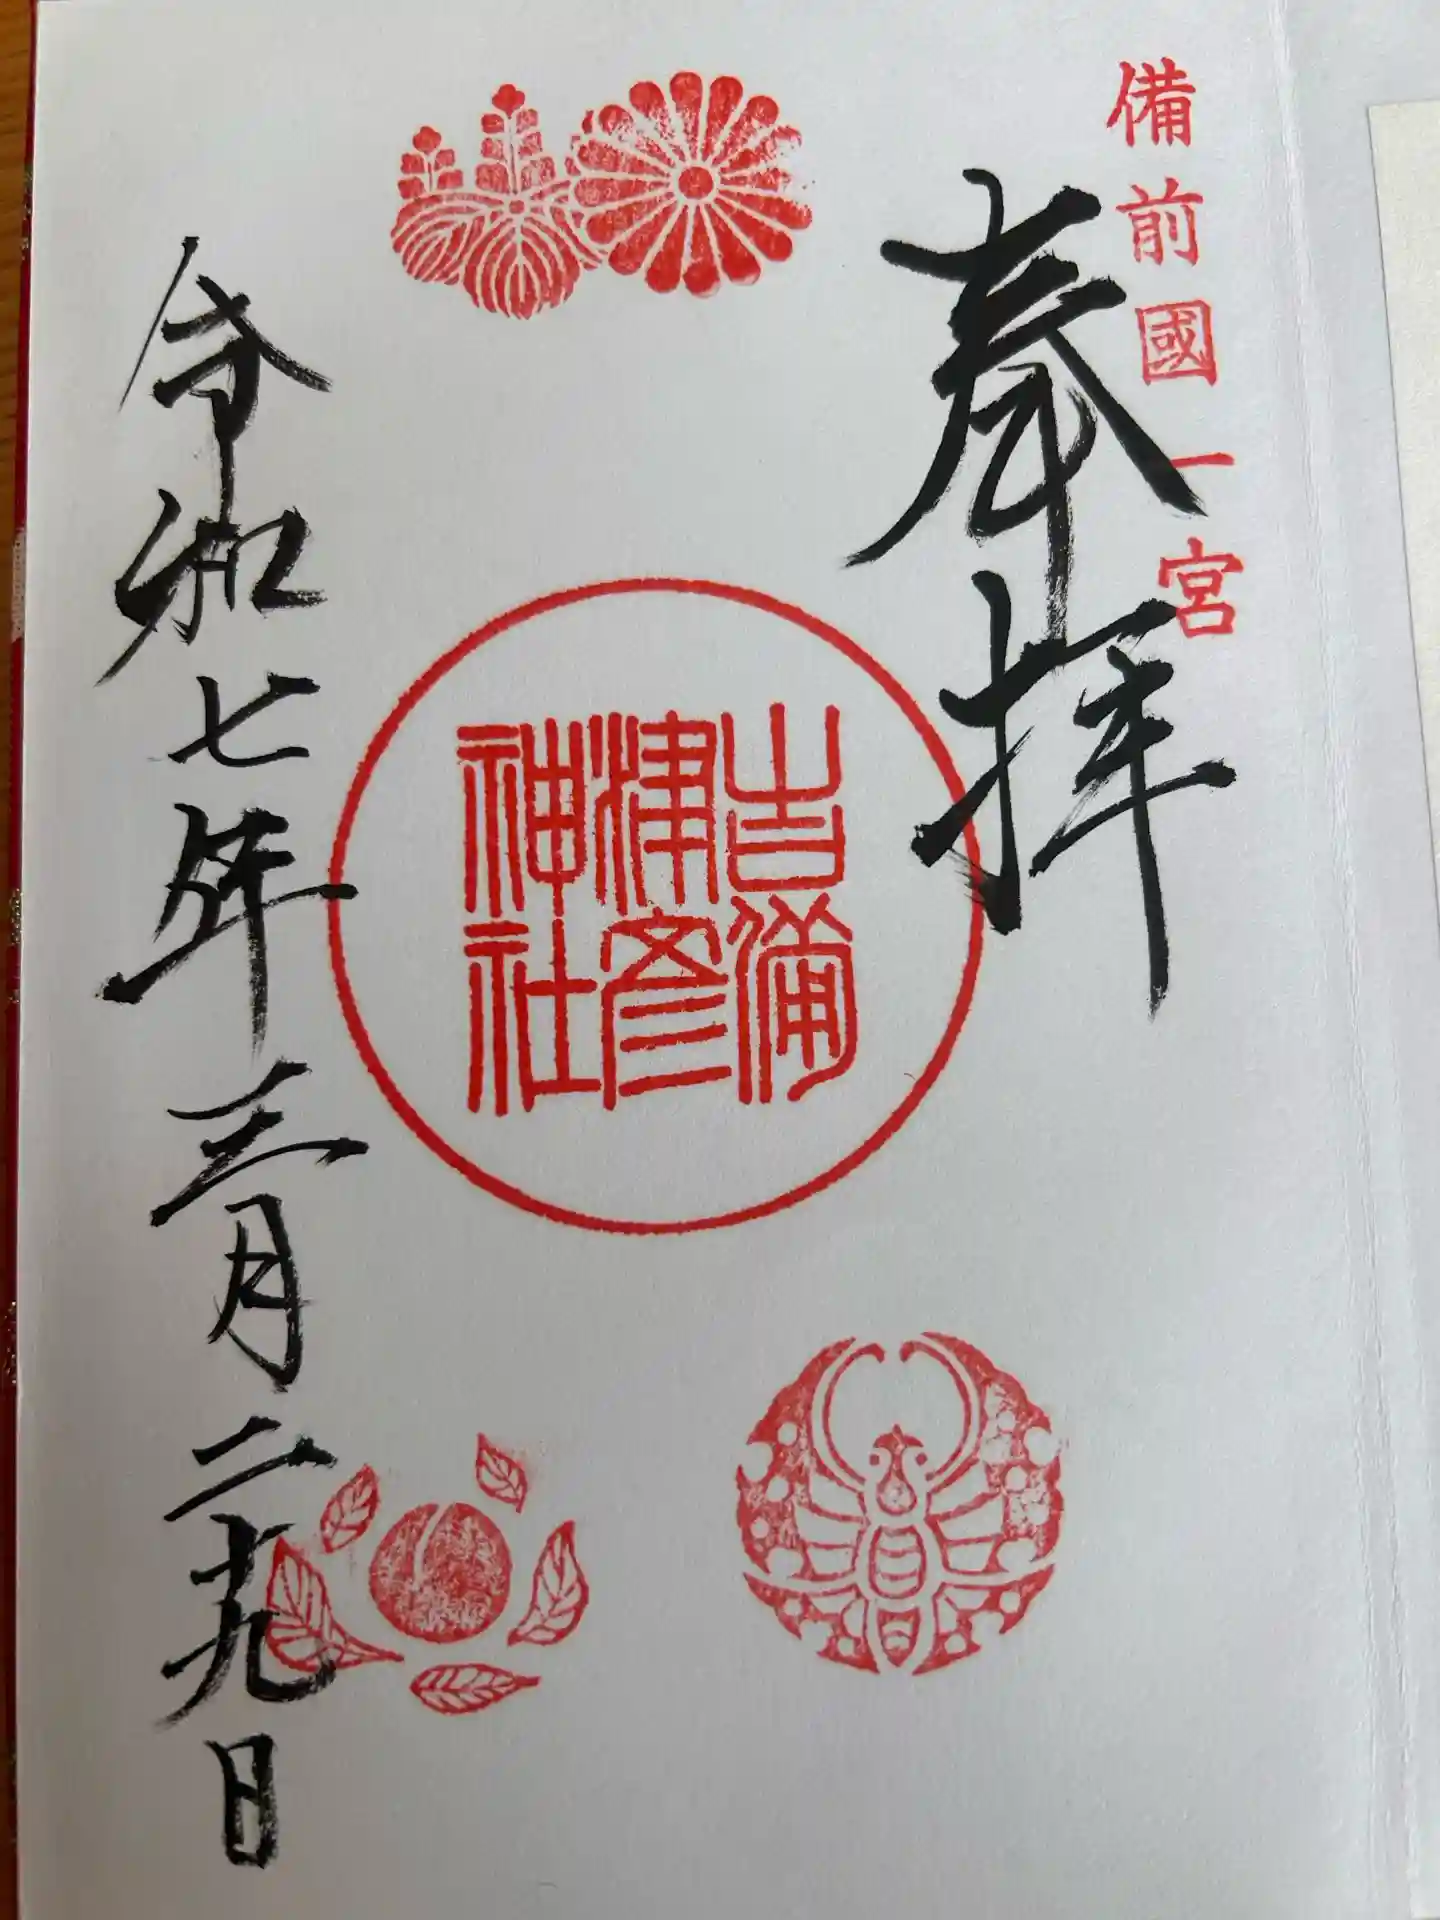 備前國一宮
奉拝
吉備
津彦
神社
令和七年三月二十九日